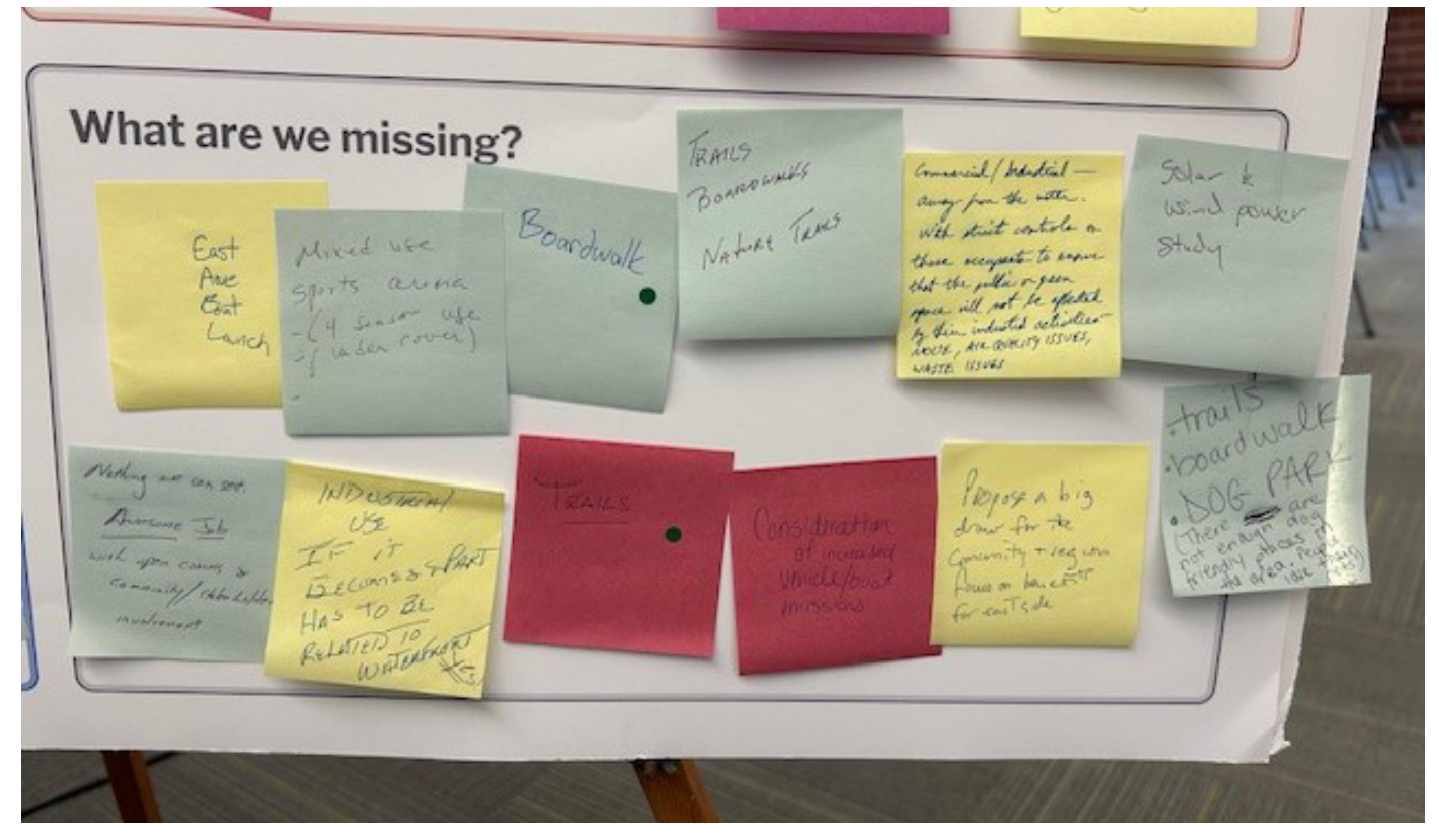 What are we missing?
East
Ave
Boat
Lanch
Mixed use
sports arena
-(4 season use
under cover)
Boardwalk
TRAILS
BOARDWALKS
NATURE TRAILS
Commercial/Industrial —
away from the water.
With strict controls on
those occupants to ensure
that the public or green
space will not be affected
by their industrial activities—
NOISE, AIR QUALITY ISSUES,
WASTE ISSUES
Solar &
wind power
study
Nothing we can see.
Awesome Job
with open comms &
community/stakeholder
involvement
INDUSTRIAL
USE
IF IT
BECOMES A PART
HAS TO BE
RELATED TO
WATERFRONT
TRAILS
Consideration
of increased
vehicle/boat
missions
Propose a big
draw for the
Community + region
Focus on benefits
for east side
·trails
·boardwalk
·DOG PARK
(There are
not enough dog
friendly places in
the area. People